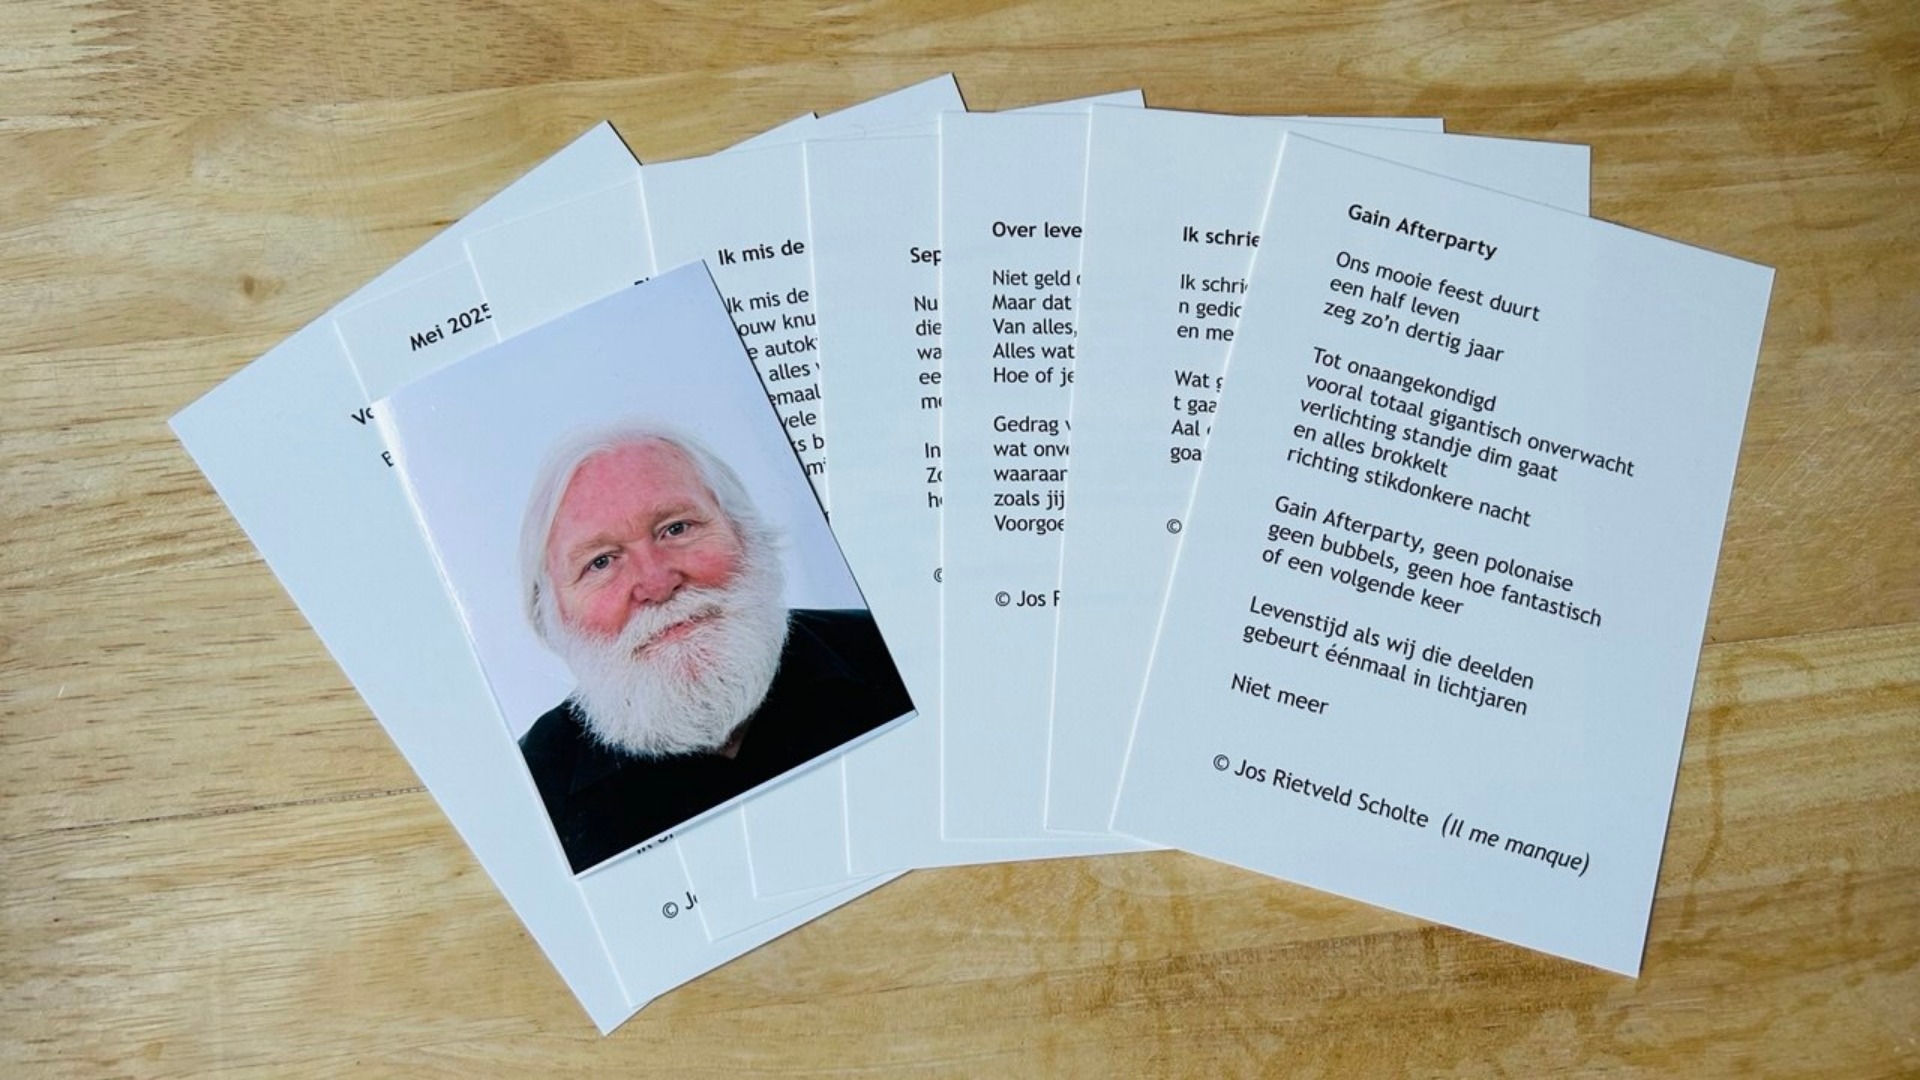 Mei 2025
Ik mis de
Ik mis de
autok
alles
b
© J
Nu
die
wa
ee
me
In
Over leve
Niet geld
Maar dat
Van alles,
Alles wat
Hoe of je
Gedrag
wat onve
waaraan
zoals jij
Voorgoe
© Jos
Ik schrie
Ik schri
n gedic
en me
Wat
t gaa
Aal
goa
©
Gain Afterparty
Ons mooie feest duurt
een half leven
zeg zo'n dertig jaar
Tot onaangekondigd
vooral totaal gigantisch onverwacht
verlichting standje dim gaat
en alles brokkelt
richting stikdonkere nacht
Gain Afterparty, geen polonaise
geen bubbels, geen hoe fantastisch
of een volgende keer
Levenstijd als wij die deelden
gebeurt éénmaal in lichtjaren
Niet meer
© Jos Rietveld Scholte (Il me manque)